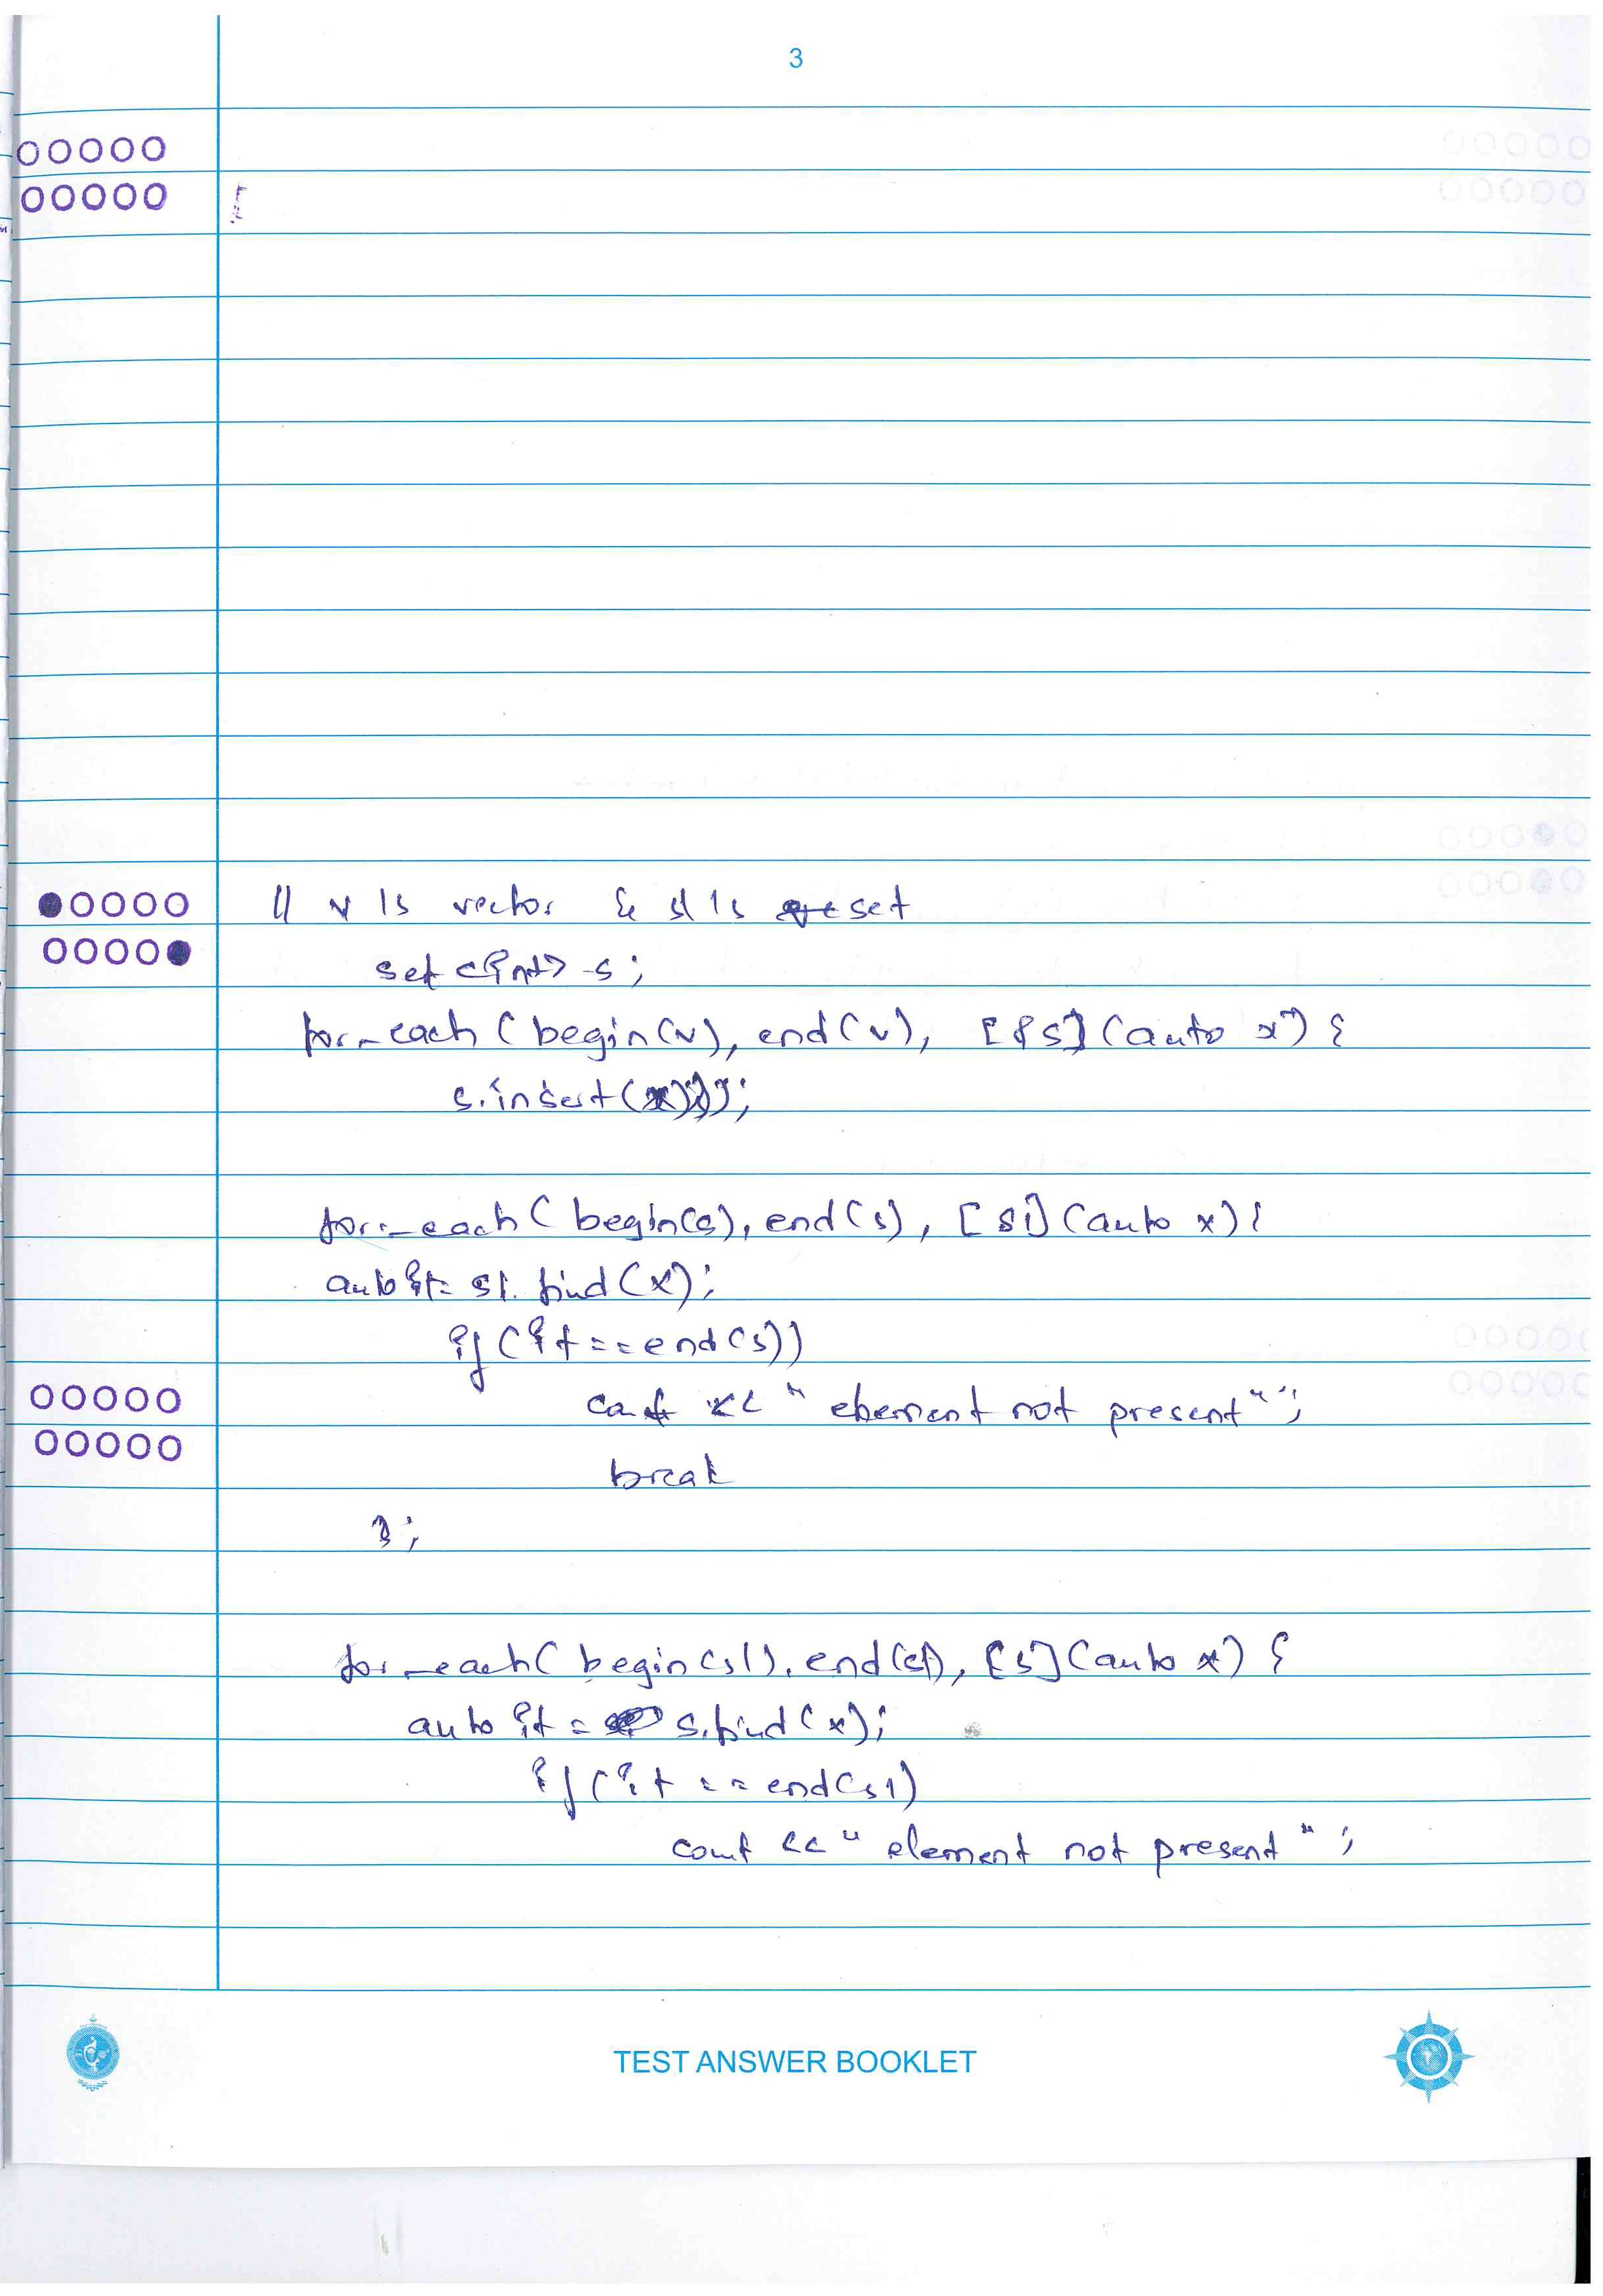 3
// v is vector & s1 is set
set <int> s;
for_each ( begin(v), end(v), [&s] (auto x) {
s.insert(x);});
for_each ( begin(s), end(s), [s1] (auto x) {
auto it = s1.find(x);
if (it == end(s))
cout << " element not present";
break
};
for_each ( begin(s1), end(s1), [s] (auto x) {
auto it = s.find(x);
if (it == end(s1)
cout << " element not present " ;
TEST ANSWER BOOKLET